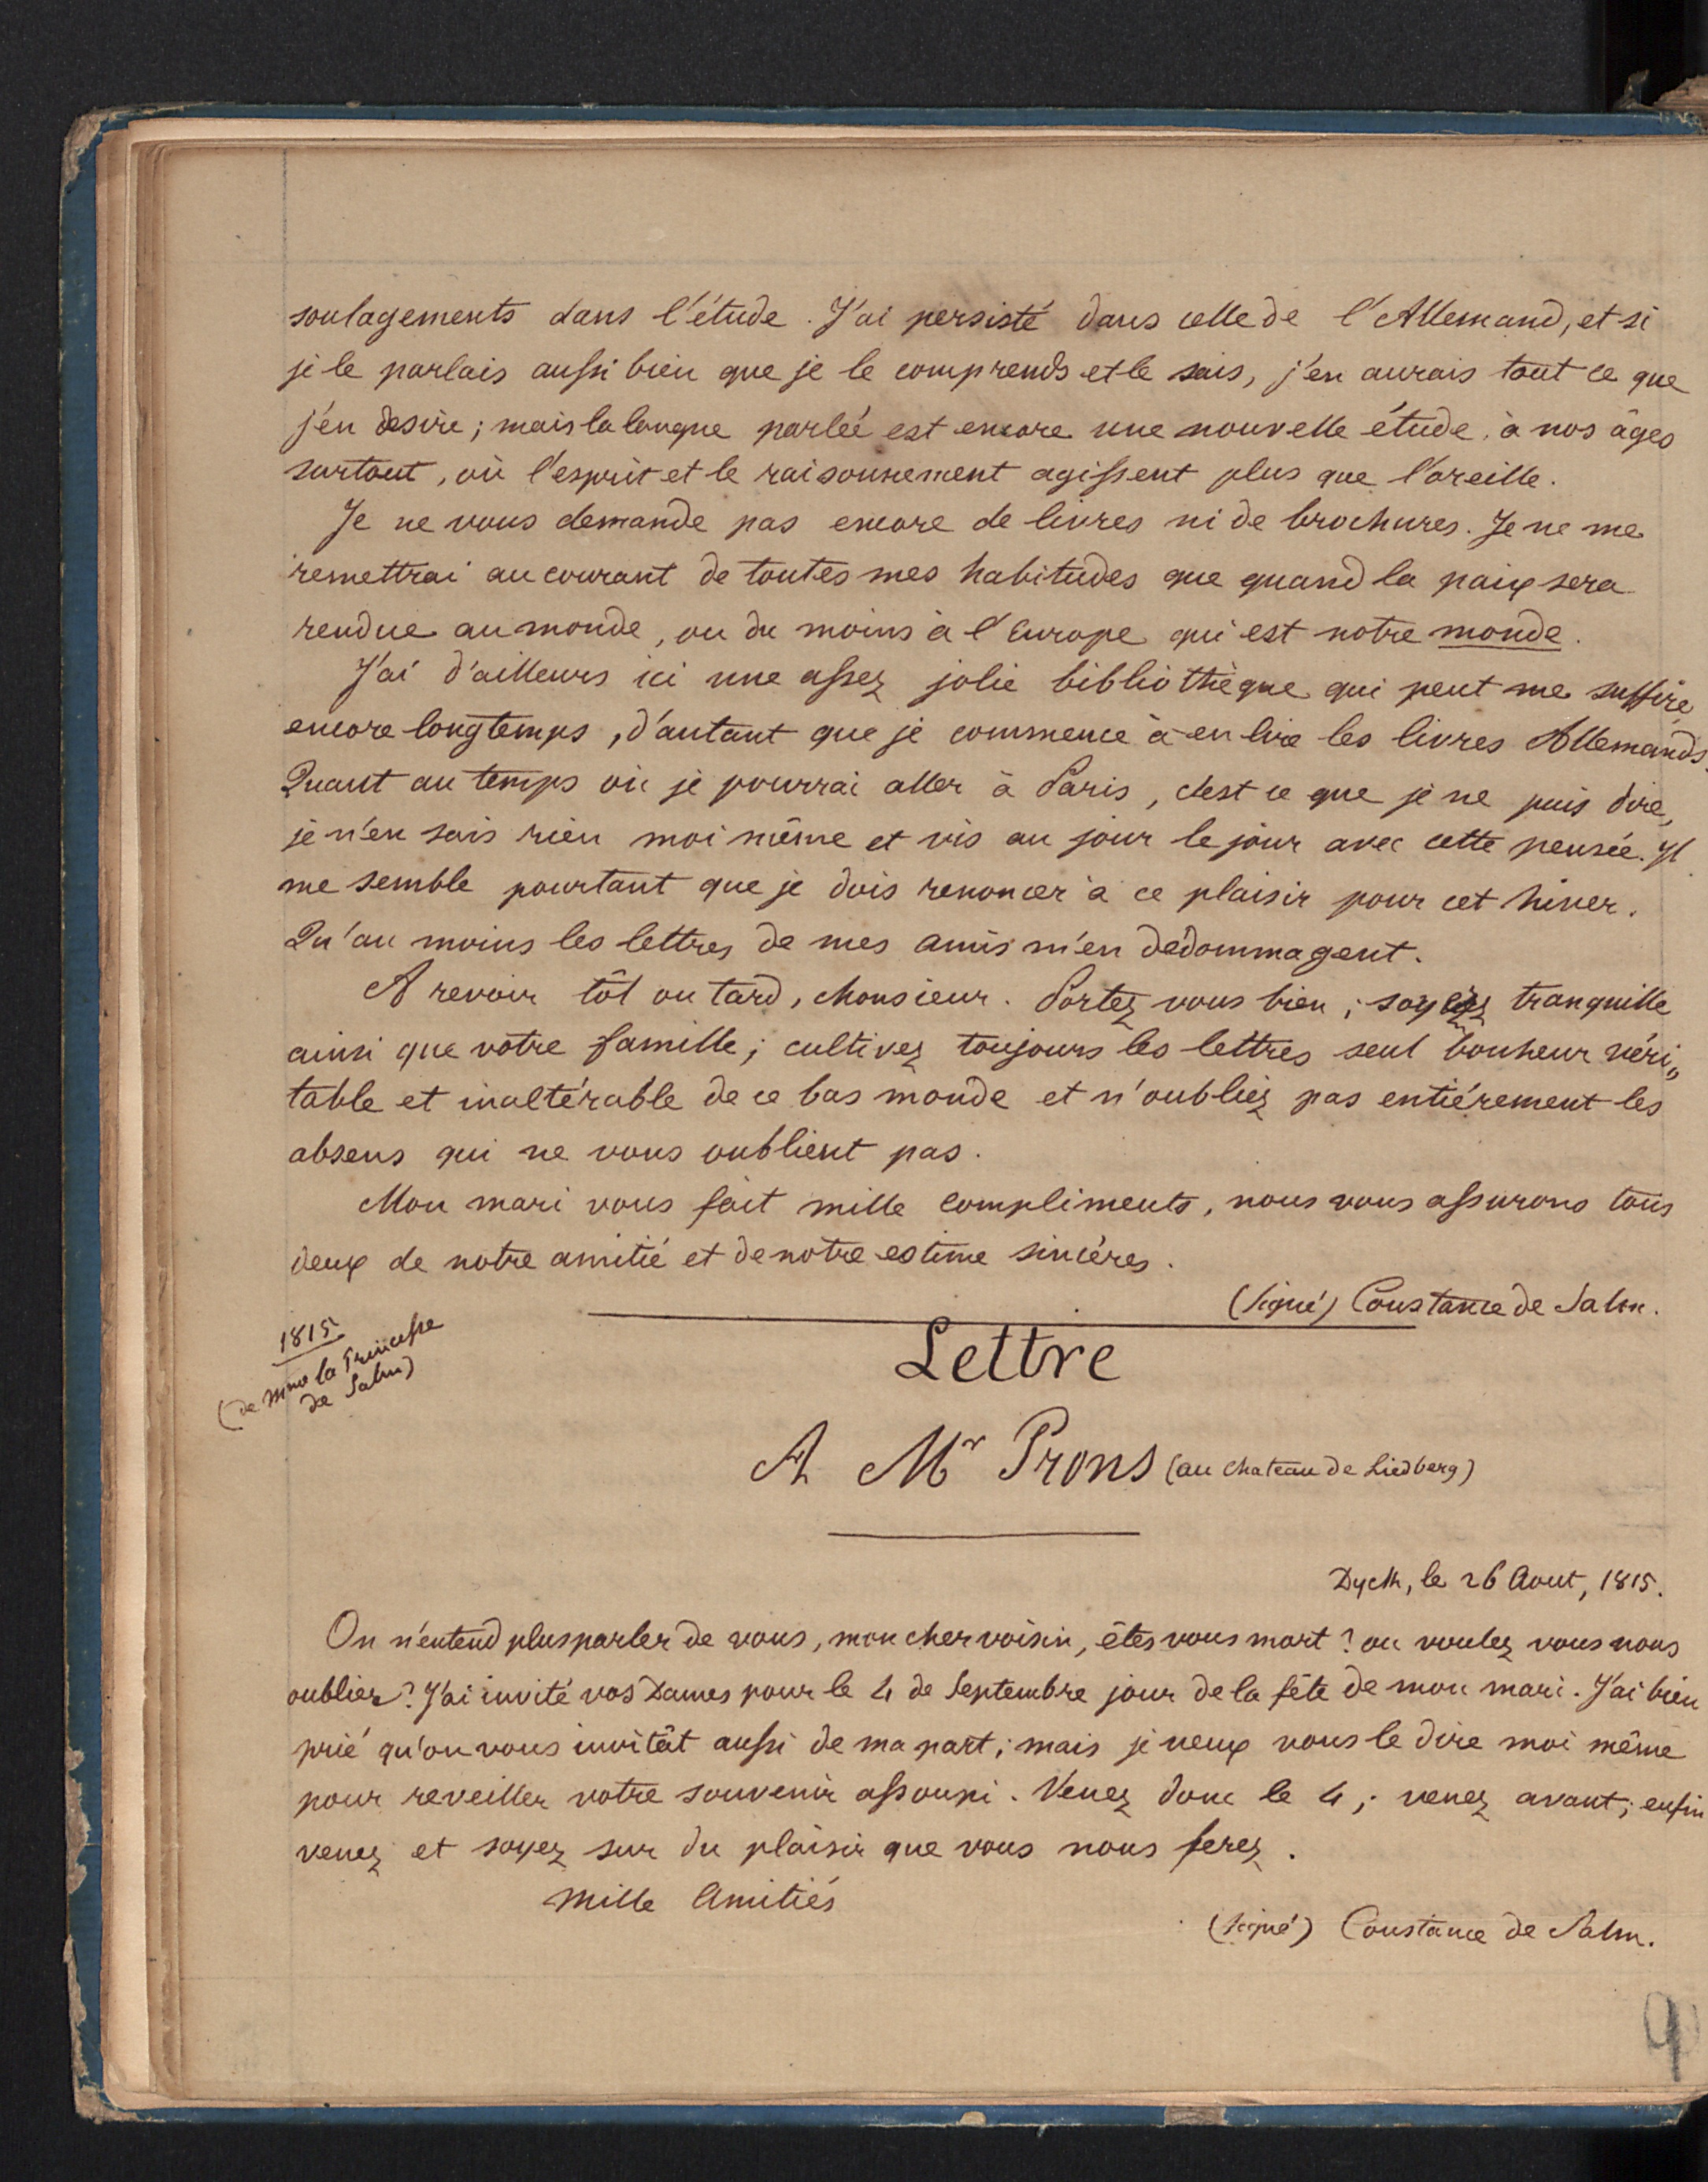 soulagements dans l'étude. J'ai persisté dans celle de l'Allemand, et si
je le parlais aussi bien que je le comprends et le sais, j'en aurais tout ce que
j'en desire; mais la langue parlée est encore une nouvelle étude, à nos âges
surtout, où l'esprit et le raisonnement agissent plus que l'oreille.
Je ne vous demande pas encore de livres ni de brochures. Je ne me
remettrai au courant de toutes mes habitudes que quand la paix sera
rendue au monde, ou du moins à l'Europe qui est notre monde.
J'ai d'ailleurs ici une assez jolie bibliothèque qui peut me suffire
encore longtemps, d'autant que je commence à en lire les livres Allemands.
Quant au temps où je pourrai aller à Paris, c'est ce que je ne puis dire,
je n'en sais rien moi même et vis au jour le jour avec cette pensée. Il
me semble pourtant que je dois renoncer à ce plaisir pour cet hiver.
Qu'au moins les lettres de mes amis m'en dédommagent.
A revoir tôt ou tard, Monsieur. Portez vous bien; soyez tranquille
ainsi que votre famille; cultivez toujours les lettres seul bonheur véri„
table et inaltérable de ce bas monde et n'oubliez pas entiérement les
absens qui ne vous oublient pas.
Mon mari vous fait mille compliments, nous vous assurons tous
deux de notre amitié et de notre estime sincères.
(Signé) Constance de Salm.
1815
(de Mme la Princesse
de Salm)
Lettre
A Mr Prons (au chateau de Liedberg)
Dyck, le 26 Aout, 1815.
On n'entend plus parler de vous, mon cher voisin, êtes vous mort? ou voulez vous nous
oublier? J'ai invité vos Dames pour le 4 de Septembre jour de la fête de mon mari. J'ai bien
prié qu'on vous invitât aussi de ma part; mais je veux vous le dire moi même
pour reveiller votre souvenir assoupi. Venez donc le 4; venez avant; enfin
venez et soyez sur du plaisir que vous nous ferez.
Mille Amitiés
(Signé) Constance de Salm.
9